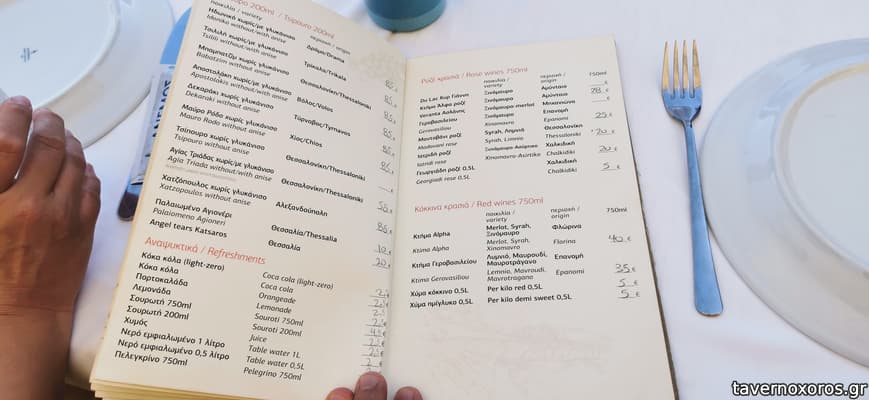 Τσίπουρο 200ml / Tsipouro 200ml
ποικιλία / variety
περιοχή / origin
Ηδωνικό χωρίς/με γλυκάνισο
Idoniko without/with anise
Δράμα/Drama
Τσιλιλή χωρίς/με γλυκάνισο
Tsilili without/with anise
Τρίκαλα/Trikala
Μπαμπατζίμ χωρίς γλυκάνισο
Babatzim without anise
Θεσσαλονίκη/Thessaloniki
Αποστολάκη χωρίς/με γλυκάνισο
Apostolakis without/with anise
Βόλος/Volos
Δεκαράκι χωρίς γλυκάνισο
Dekaraki without anise
Τύρναβος/Tyrnavos
Μαύρο Ρόδο χωρίς γλυκάνισο
Mauro Rodo without anise
Χίος/Chios
Τσίπουρο χωρίς γλυκάνισο
Tsipouro without anise
Θεσσαλονίκη/Thessaloniki
Αγίας Τριάδας χωρίς/με γλυκάνισο
Agia Triada without/with anise
Θεσσαλονίκη/Thessaloniki
Χατζόπουλος χωρίς γλυκάνισο
Xatzopoulos without anise
Αλεξανδούπολη
Παλαιωμένο Αγιονέρι
Palaiomeno Agioneri
Θεσσαλία/Thessalia
Angel tears Katsaros
Θεσσαλία
Αναψυκτικά / Refreshments
Κόκα κόλα (light-zero) Coca cola (light-zero)
Κόκα κόλα Coca cola
Πορτοκαλάδα Orangeade
Λεμονάδα Lemonade
Σουρωτή 750ml Souroti 750ml
Σουρωτή 200ml Souroti 200ml
Χυμός Juice
Νερό εμφιαλωμένο 1 λίτρο Table water 1L
Νερό εμφιαλωμένο 0,5 λίτρο Table water 0,5L
Πελεγκρίνο 750ml Pelegrino 750ml
Ροζέ κρασιά / Rose wines 750ml
ποικιλία / variety
περιοχή / origin
750ml
Du Lac Κυρ Γιάννη Ξινόμαυρο Αμύνταιο 28 €
Κτήμα Άλφα ροζέ Ξινόμαυρο Αμύνταιο
Γεροβασιλείου Ξινόμαυρο Επανομή 25 €
Gerovasiliou Xinomavro Epanomi
Μαντοβάνι ροζέ Syrah, Λημνιό Θεσσαλονίκη 20 €
Madovani rose Syrah, Limnio Thessaloniki
Ιατρίδη ροζέ Ξινόμαυρο-Ασύρτικο Χαλκιδική 20 €
Iatridi rose Xinomavro-Asirtiko Chalkidiki
Γεωργιάδη ροζέ 0,5L Χαλκιδική 5 €
Georgiadi rose 0,5L Chalkidiki
Κόκκινα κρασιά / Red wines 750ml
ποικιλία / variety
περιοχή / origin
750ml
Κτήμα Alpha Merlot, Syrah, Ξινόμαυρο Φλώρινα
Ktima Alpha Merlot, Syrah, Xinomavro Florina 40 €
Κτήμα Γεροβασιλείου Λημνιό, Μαυρούδι, Μαυροτράγανο Επανομή
Ktima Gerovasiliou Lemnio, Mavroudi, Mavrotragano Epanomi 35 €
Χύμα κόκκινο 0,5L Per kilo red 0,5L 5 €
Χύμα ημίγλυκο 0,5L Per kilo demi sweet 0,5L 5 €
tavernoxoros.gr